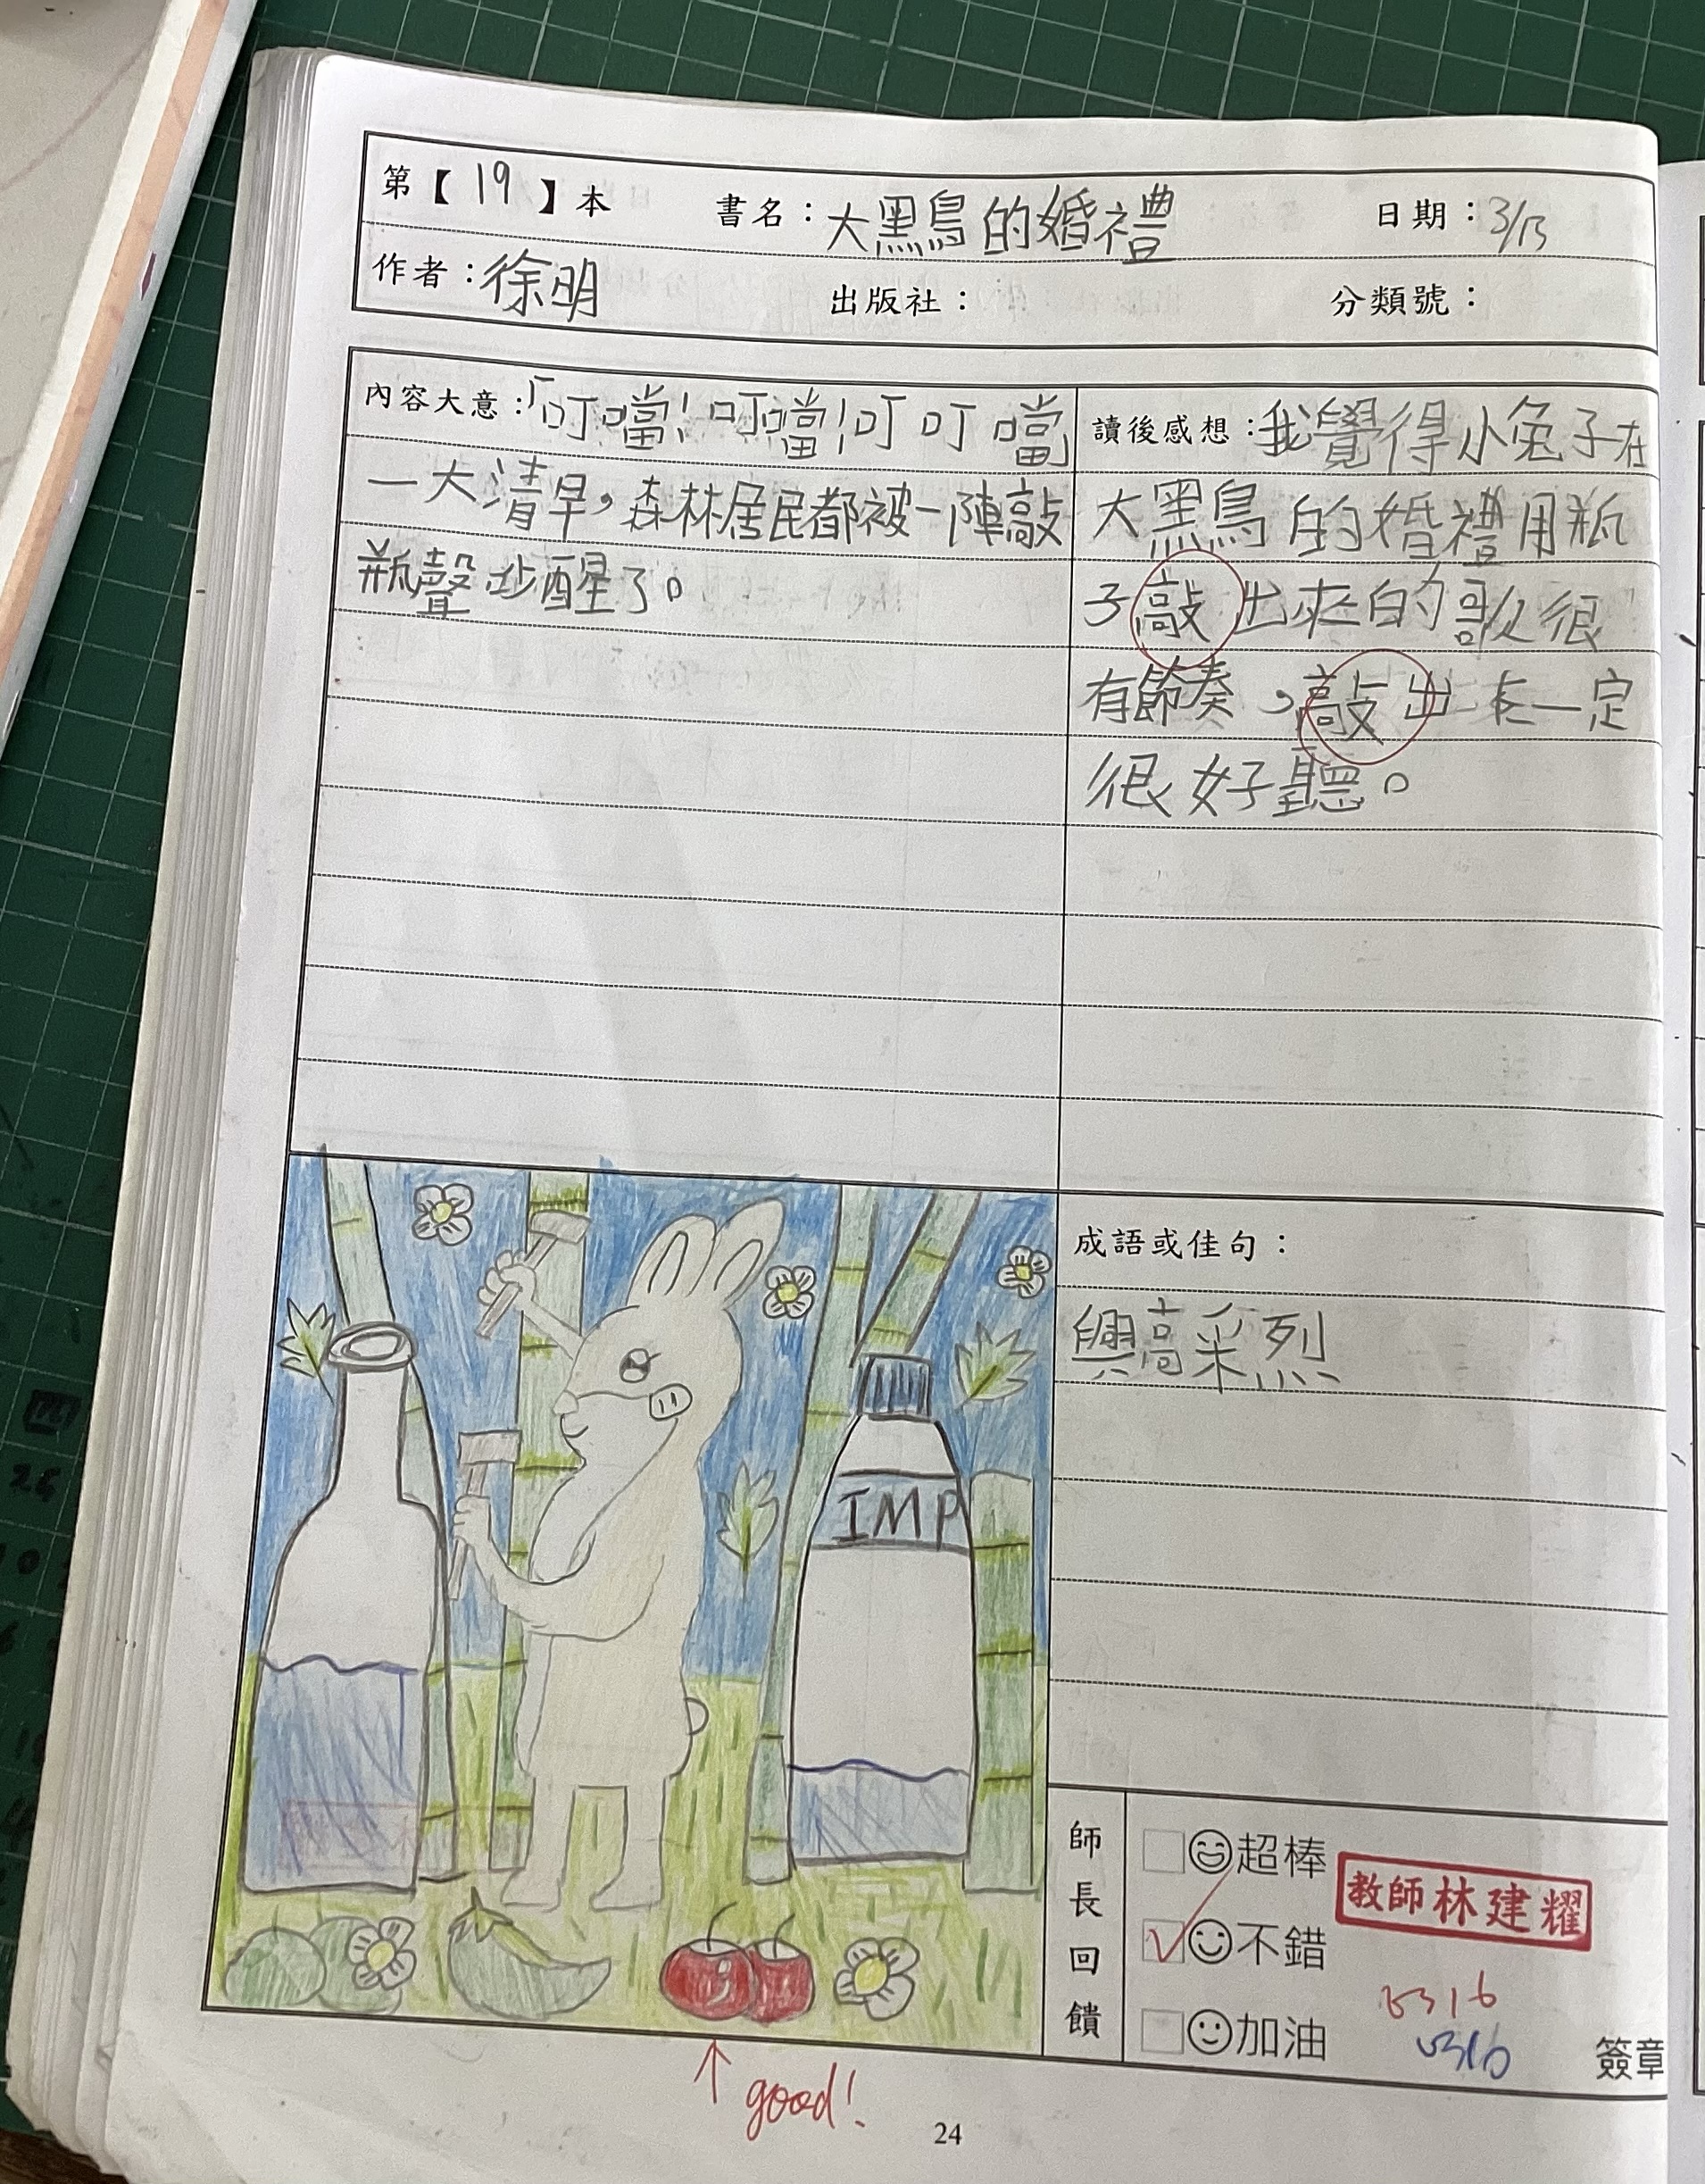 第【19】本 書名：大黑鳥的婚禮 日期：3/13
作者：徐明 出版社： 分類號：
內容大意：「叮噹！叮噹！叮叮噹」
一大清早，森林居民都被一陣敲
瓶聲吵醒了。
讀後感想：我覺得小兔子在
大黑鳥的婚禮用瓶
子敲出來的歌很
有節奏，敲出來一定
很好聽。
IMP
成語或佳句：
興高采烈
師長回饋
超棒
不錯
加油
教師林建耀
0316
0316
簽章
good!
24